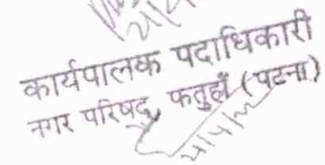 कार्यपालक पदाधिकारी
नगर परिषद्, फतुहाँ (पटना)